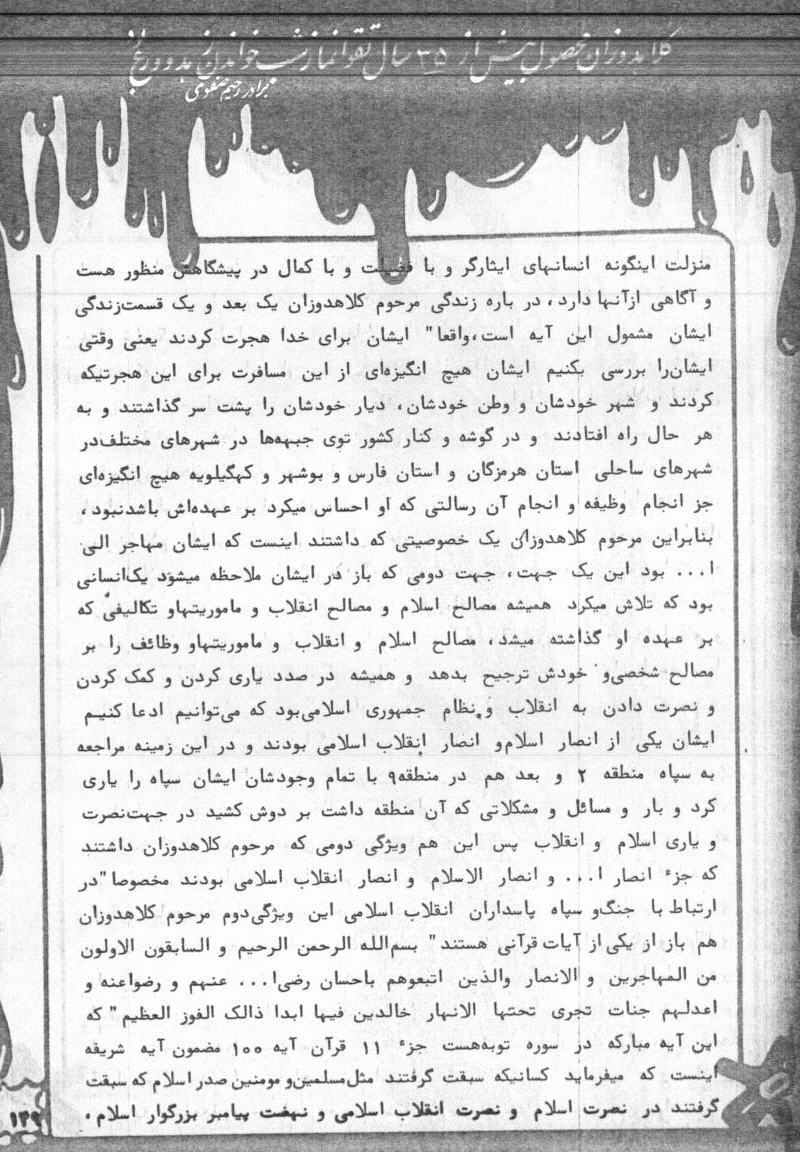 کلاهدوزان محصول بیش از ۳۵ سال تقوا نماز شب خواندن زهد و ورع
برادر رحیم صفوی
منزلت اینگونه انسانهای ایثارگر و با فضیلت و با کمال در پیشگاهش منظور هست
و آگاهی ازآنها دارد، در باره زندگی مرحوم کلاهدوزان یک بعد و یک قسمت‌زندگی
ایشان مشمول این آیه است،واقعا" ایشان برای خدا هجرت کردند یعنی وقتی
ایشان‌را بررسی بکنیم ایشان هیچ انگیزه‌ای از این مسافرت برای این هجرتیکه
کردند و شهر خودشان و وطن خودشان، دیار خودشان را پشت سر گذاشتند و به
هر حال راه افتادند و در گوشه و کنار کشور توی جبهه‌ها در شهرهای مختلف‌در
شهرهای ساحلی استان هرمزگان و استان فارس و بوشهر و کهگیلویه هیچ انگیزه‌ای
جز انجام وظیفه و انجام آن رسالتی که او احساس میکرد بر عهده‌اش باشدنبود،
بنابراین مرحوم کلاهدوزان یک خصوصیتی که داشتند اینست که ایشان مهاجر الی
ا... بود این یک جهت، جهت دومی که باز در ایشان ملاحظه میشود یک‌انسانی
بود که تلاش میکرد همیشه مصالح اسلام و مصالح انقلاب و ماموریتهاو تکالیفی که
بر عهده او گذاشته میشد، مصالح اسلام و انقلاب و ماموریتهاو وظائف را بر
مصالح شخصی‌و خودش ترجیح بدهد و همیشه در صدد یاری کردن و کمک کردن
و نصرت دادن به انقلاب و نظام جمهوری اسلامی‌بود که می‌توانیم ادعا کنیم
ایشان یکی از انصار اسلام‌و انصار انقلاب اسلامی بودند و در این زمینه مراجعه
به سپاه منطقه ۲ و بعد هم در منطقه۹ با تمام وجودشان ایشان سپاه را یاری
کرد و بار و مسائل و مشکلاتی که آن منطقه داشت بر دوش کشید در جهت‌نصرت
و یاری اسلام و انقلاب پس این هم ویژگی دومی که مرحوم کلاهدوزان داشتند
که جزء انصار ا... و انصار الاسلام و انصار انقلاب اسلامی بودند مخصوصا"در
ارتباط با جنگ‌و سپاه پاسداران انقلاب اسلامی این ویژگی‌دوم مرحوم کلاهدوزان
هم باز از یکی از آیات قرآنی هستند" بسم‌الله الرحمن الرحیم و السابقون الاولون
من المهاجرین و الانصار والذین اتبعوهم باحسان رضی‌ا... عنهم و رضواعنه و
اعدلهم جنات تجری تحتها الانهار خالدین فیها ابدا ذالک الفوز العظیم" که
این آیه مبارکه در سوره توبه‌هست جزء ۱۱ قرآن آیه ۱۰۰ مضمون آیه شریفه
اینست که میفرماید کسانیکه سبقت گرفتند مثل‌مسلمین‌و مومنین صدر اسلام که سبقت
گرفتند در نصرت اسلام و نصرت انقلاب اسلامی و نهضت پیامبر بزرگوار اسلام،
۱۲۹